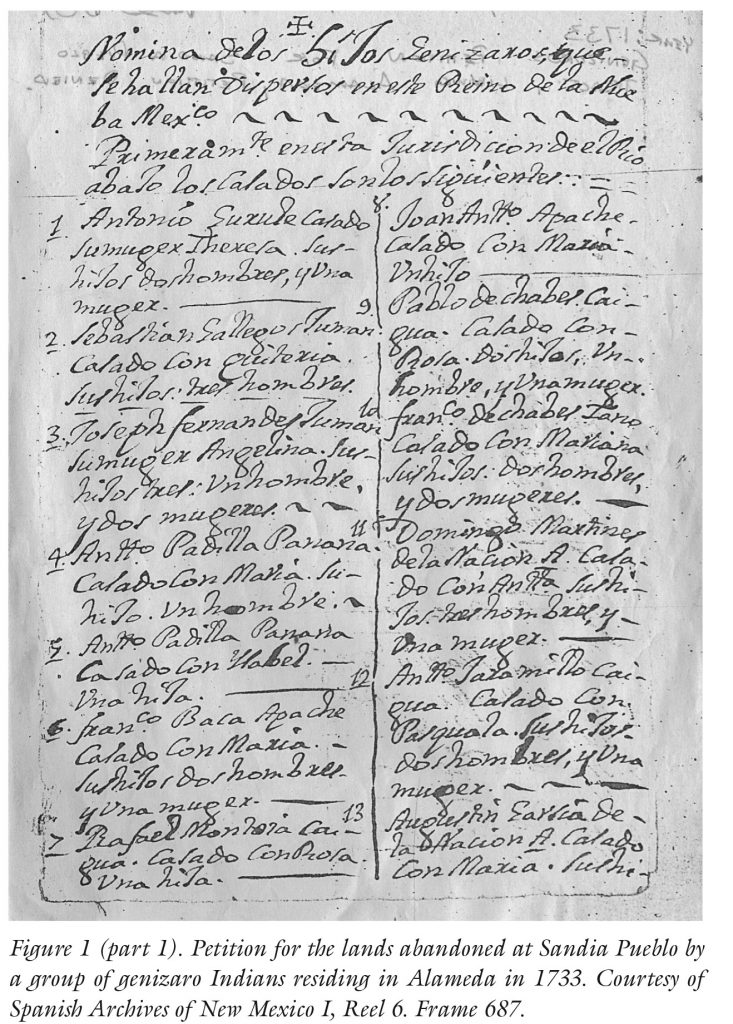 Nomina de los Hijos Genizaros, que
se hallan Dispersos en este Reino de la Nue
ba Mexco
Primeramte en esta Jurisdicion de el Rio
abajo los Casados son los siguientes:
1 Antonio Gurule Casado
su muger Theresa. sus
hijos dos hombres, y Una
muger.
2. Sebastian Gallegos Juman
Casado Con quiteria.
sus hijos: tres hombres.
3. Joseph fernandes Juman
su muger Angelina. sus-
hijos tres: Un hombre,
y dos mugeres.
4. Antto Padilla Panana.
Casado Con Maria. su-
hijo. Un hombre.
5. Antto Padilla Panana
Casado con Ysabel.
Una hija.
6. franco Baca Apache
Casado Con Maria.
sus hijos dos hombres-
y Una muger.
7 Rafael Montoia Cai-
gua. Casado Con Rosa.
Una hija.
8. Joan Antto Apache-
Casado Con Maria-
Un hijo
9. Pablo de chabes Cai-
gua. Casado Con-
Rosa. dos hijos, Un-
hombre, y Una muger.
10 franco de chabes
Casado Con Mariana
sus hijos. dos hombres,
y dos mugeres.
11 Domingo Martines
de la Nacion A. Casa-
do Con Antta sus hi-
jos. tres hombres, y-
Una muger.
12 Antto Jaramillo Cai-
gua. Casado Con
Pasquala. sus hijos-
dos hombres, y Una
muger.
13 Augustin Garsia de-
la Nacion A. Casado
Con Maria. sus hi-
Figure 1 (part 1). Petition for the lands abandoned at Sandia Pueblo by
a group of genizaro Indians residing in Alameda in 1733. Courtesy of
Spanish Archives of New Mexico I, Reel 6. Frame 687.